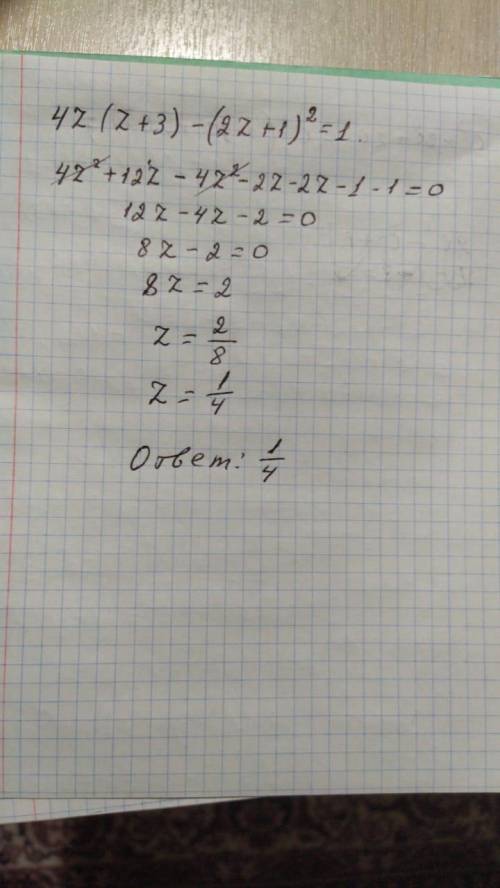 4z(z+3)-(2z+1)²=1.
4z²+12z-4z²-2z-2z-1-1=0
12z-4z-2=0
8z-2=0
8z=2
z=2/8
z=1/4
Ответ: 1/4